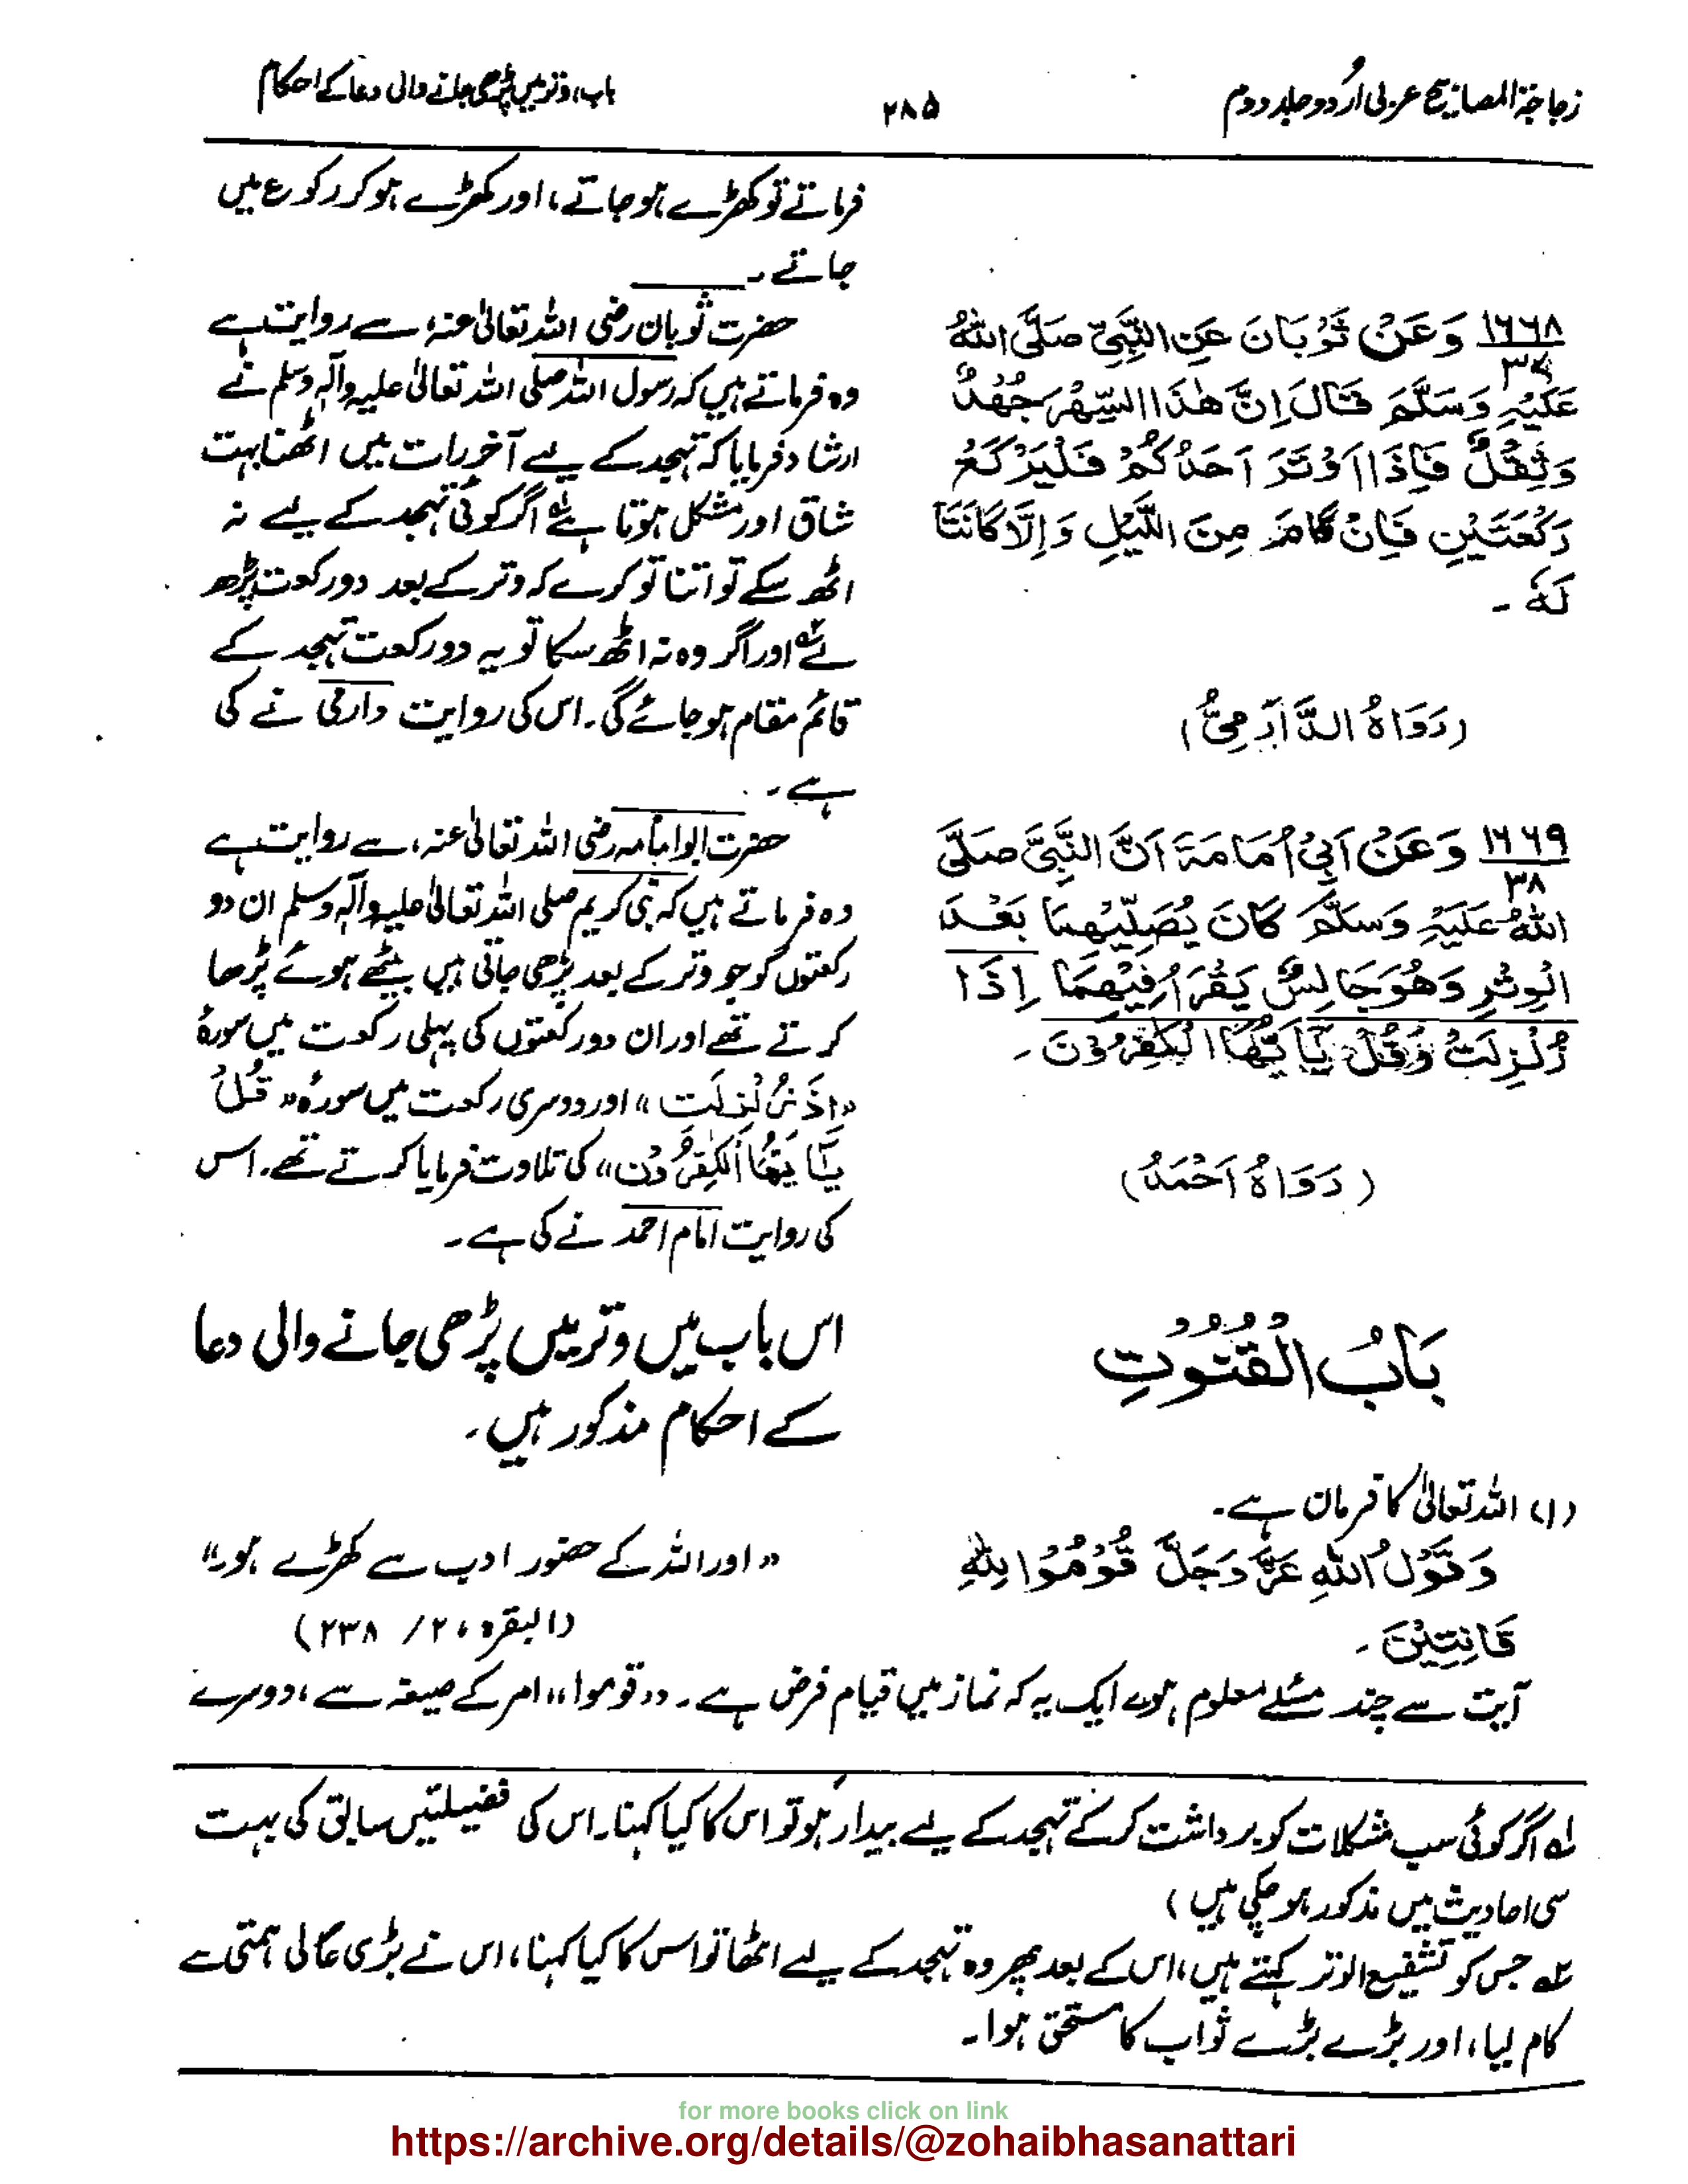 زجاجۃ المصابیح عربی اُردو جلد دوم
۲۸۵
باب، وتر میں پڑھی جانے والی دعا کے احکام
فرماتے تو کھڑے ہو جاتے، اور کھڑے ہو کر رکوع میں
جاتے۔
۱۶۶۸ وَعَنْ ثَوْبَانَ عَنِ النَّبِيِّ صَلَّى اللهُ
۳۷
عَلَيْهِ وَسَلَّمَ قَالَ اِنَّ هٰذَا السَّهْرَ جُهْدٌ
وَثِقْلٌ فَاِذَا اَوْتَرَ اَحَدُكُمْ فَلْيَرْكَعْ
رَكْعَتَيْنِ فَاِنْ قَامَ مِنَ اللَّيْلِ وَاِلَّا كَانَتَا
لَهٗ۔
(رَوَاهُ الدَّارَمِيُّ)
حضرت ثوبان رضی اللہ تعالیٰ عنہ، سے روایت ہے
وہ فرماتے ہیں کہ رسول اللہ صلی اللہ تعالیٰ علیہ وآلہ وسلم نے
ارشاد فرمایا کہ تہجد کے لیے آخر رات میں اٹھنا بہت
شاق اور مشکل ہوتا ہے ۱؎ اگر کوئی تہجد کے لیے نہ
اٹھ سکے تو اتنا تو کرے کہ وتر کے بعد دو رکعت پڑھ
لے ۲؎ اور اگر وہ نہ اٹھ سکا تو یہ دو رکعت تہجد کے
قائم مقام ہو جائے گی۔ اس کی روایت دارمی نے کی
ہے۔
۱۶۶۹ وَعَنْ اَبِيْ اُمَامَةَ اَنَّ النَّبِيَّ صَلَّى
۳۸
اللهُ عَلَيْهِ وَسَلَّمَ كَانَ يُصَلِّيْهِمَا بَعْدَ
الْوِتْرِ وَهُوَ جَالِسٌ يَقْرَأُ فِيْهِمَا اِذَا
زُلْزِلَتْ وَقُلْ يٰٓاَيُّهَا الْكٰفِرُوْنَ۔
(رَوَاهُ اَحْمَدُ)
حضرت ابوامامہ رضی اللہ تعالیٰ عنہ، سے روایت ہے
وہ فرماتے ہیں کہ نبی کریم صلی اللہ تعالیٰ علیہ وآلہ وسلم ان دو
رکعتوں کو جو وتر کے بعد پڑھی جاتی ہیں بیٹھے ہوئے پڑھا
کرتے تھے اور ان دو رکعتوں کی پہلی رکعت میں سورۂ
«اِذَا زُلْزِلَتْ» اور دوسری رکعت میں سورۂ «قُلْ
يٰٓاَيُّهَا الْكٰفِرُوْنَ» کی تلاوت فرمایا کرتے تھے۔ اس
کی روایت امام احمد نے کی ہے۔
بَابُ الْقُنُوْتِ
اس باب میں وتر میں پڑھی جانے والی دعا
کے احکام مذکور ہیں۔
(۱) اللہ تعالیٰ کا فرمان ہے۔
وَقَوْلُ اللهِ عَزَّ وَجَلَّ قُوْمُوْا لِلّٰهِ
قَانِتِيْنَ۔
«اور اللہ کے حضور ادب سے کھڑے ہو»
(البقرہ، ۲/ ۲۳۸)
آیت سے چند مسئلے معلوم ہوے ایک یہ کہ نماز میں قیام فرض ہے۔ «قوموا» امر کے صیغہ سے، دوسرے
۱؎ اگر کوئی سب مشکلات کو برداشت کر کے تہجد کے لیے بیدار ہو تو اس کا کیا کہنا۔ اس کی فضیلتیں سابق کی بہت
سی احادیث میں مذکور ہو چکی ہیں)
۲؎ جس کو تشفیع الوتر کہتے ہیں، اس کے بعد پھر وہ تہجد کے لیے اٹھا تو اس کا کیا کہنا، اس نے بڑی عالی ہمتی سے
کام لیا، اور بڑے بڑے ثواب کا مستحق ہوا۔
for more books click on link
https://archive.org/details/@zohaibhasanattari